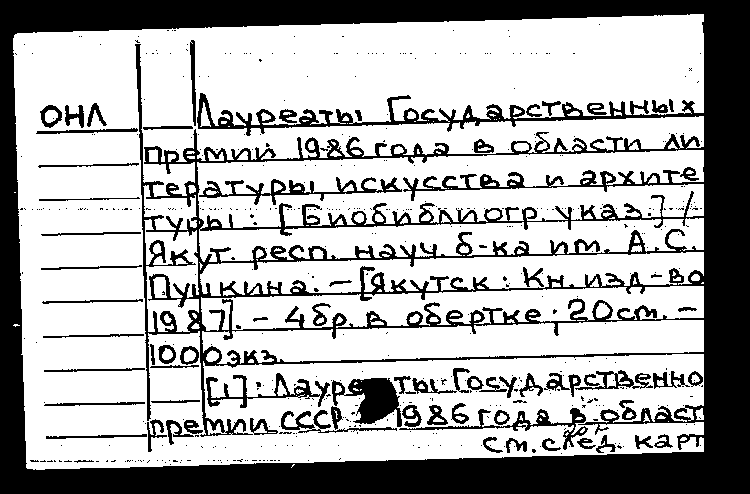 ОНЛ Лауреаты Государственных
премий 1986 года в области ли
тературы, искусства и архите
туры: [Биобиблиогр. указ.] /
Якут. респ. науч. б-ка им. А.С.
Пушкина. – [Якутск: Кн. изд-во
1987]. – 4 бр. в обертке; 20см. –
1000экз.
[1]: Лауреаты Государственно
премии СССР 1986 года в област
см. след. карт